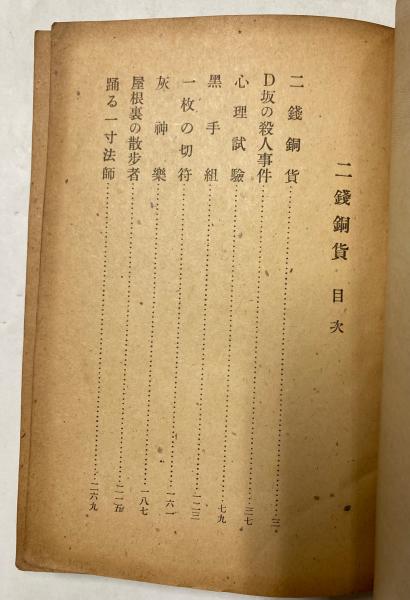 二錢銅貨 目次
二錢銅貨……三
D坂の殺人事件……三七
心理試驗……七九
黑手組……一二三
一枚の切符……一六一
灰神樂……一八七
屋根裏の散歩者……二一五
踊る一寸法師……二六九